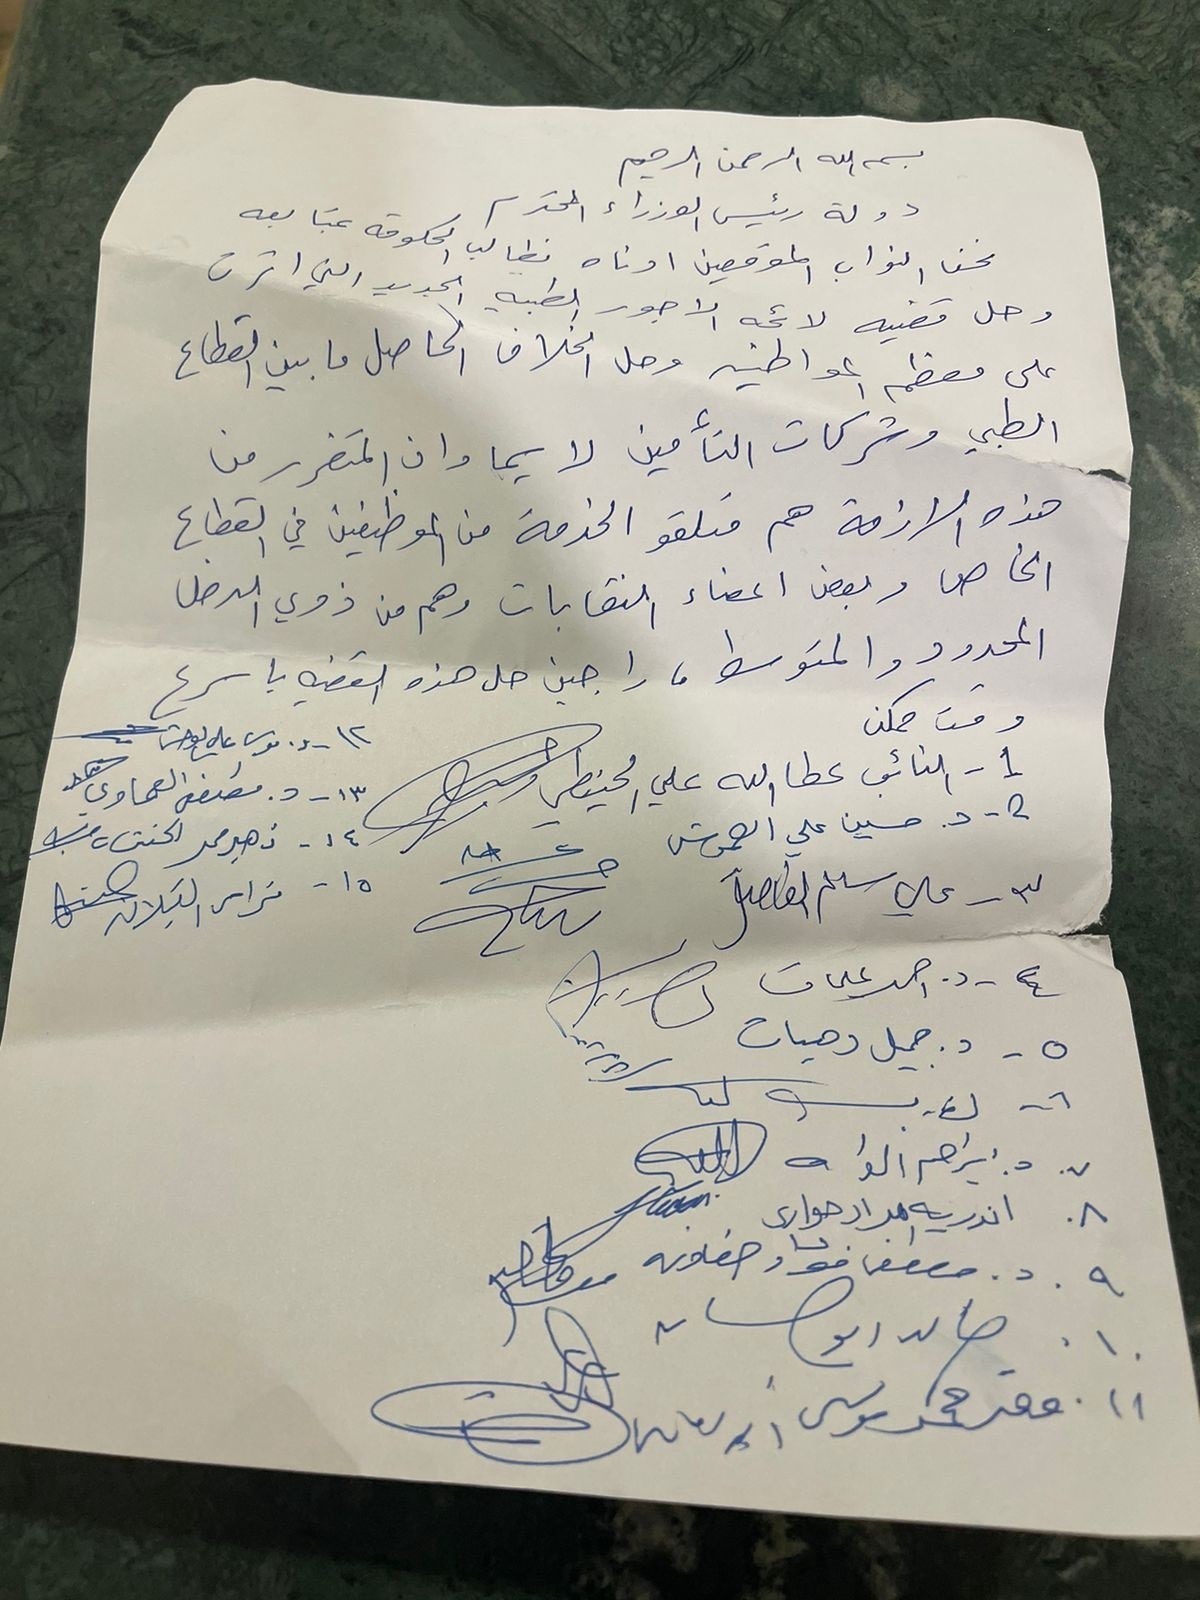 بسم الله الرحمن الرحيم
دولة رئيس الوزراء المحترم
نحن النواب الموقعين ادناه نطالب الحكومة بمتابعه
وحل قضيه لائحه الاجور الطبيه الجديد التي اثرت
على معظم المواطنين وحل الخلاف الحاصل ما بين القطاع
الطبي وشركات التأمين لا سيما وان المتضرر من
هذه الازمة هم متلقو الخدمة من الموظفين في القطاع
الخاص وبعض اعضاء النقابات وهم من ذوي الدخل
المحدود والمتوسط، راجين حل هذه القضيه باسرع
وقت ممكن
1- النائب عطا الله علي الحنيطي
٢- د. حسين علي العموش
٣- علي سليم
٤- د. احمد عليمات
٥- د. جميل دهيسات
٦-
٧. د. ابراهيم
٨. اندريه مراد حواري
٩. د. مصطفى فؤاد خصاونه
١٠. خالد ابو حسان
١١. محمد موسى
١٢- د. موسى علي
١٣- د. مصطفى العماوي
١٤- زهير محمد
١٥- فراس القبلان